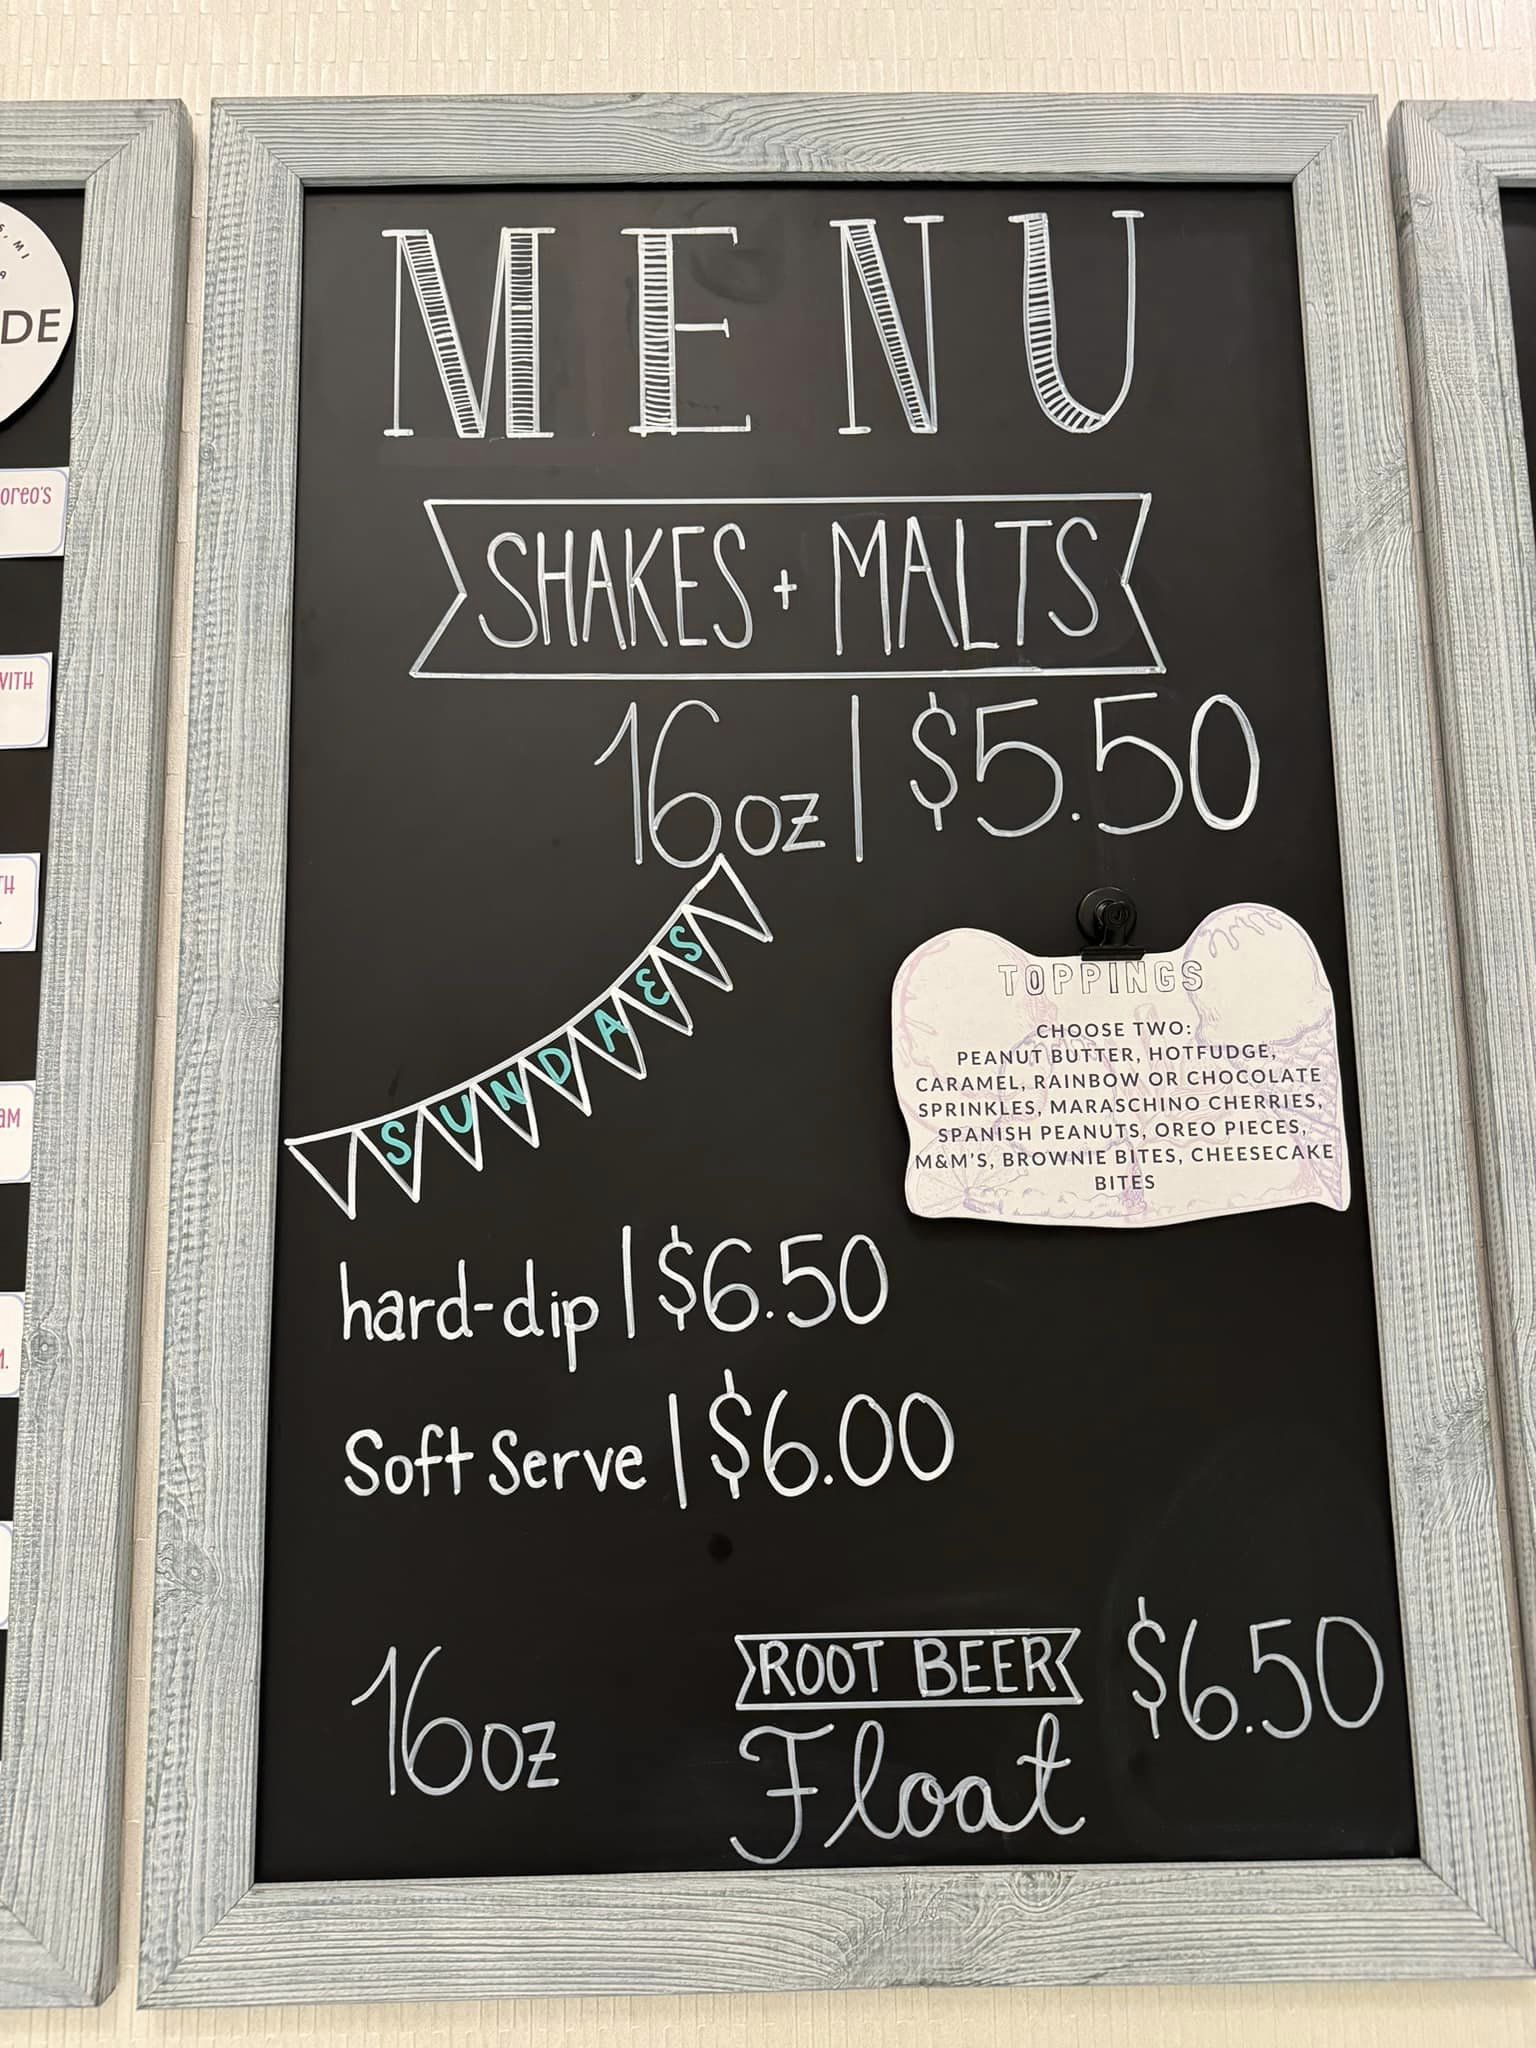 S, MI
9
DE
OREO'S
WITH
TH
AM
M.
MENU
SHAKES + MALTS
16oz | $5.50
SUNDAES
TOPPINGS
CHOOSE TWO:
PEANUT BUTTER, HOTFUDGE,
CARAMEL, RAINBOW OR CHOCOLATE
SPRINKLES, MARASCHINO CHERRIES,
SPANISH PEANUTS, OREO PIECES,
M&M'S, BROWNIE BITES, CHEESECAKE
BITES
hard-dip | $6.50
Soft Serve | $6.00
16oz ROOT BEER $6.50
Float